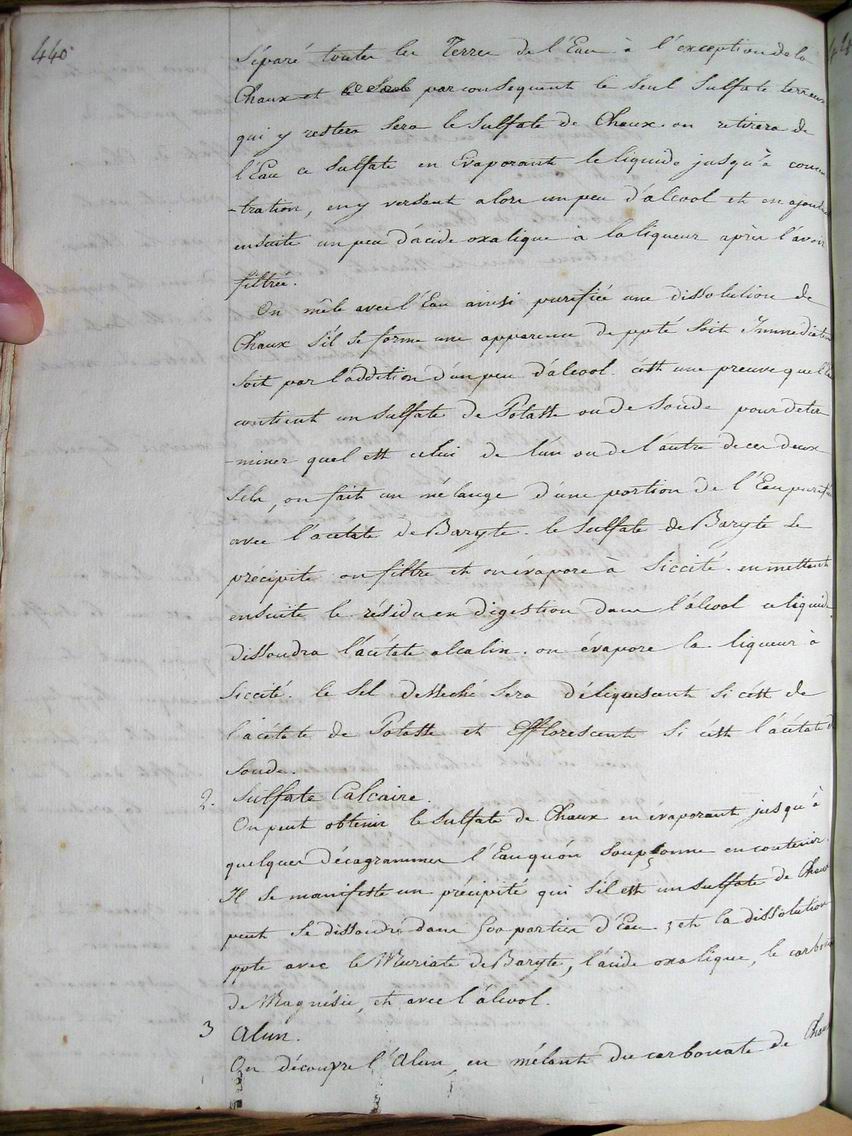 440.
séparé toutes les Terres de l'Eau à l'exception de la
Chaux et ce Seul par consequent le seul sulfate terreux
qui y restera sera le sulfate de Chaux. on retirera de
l'Eau ce sulfate en Evaporant le liquide jusqu'à concen
-tration, en y versant alors un peu d'alcool et en ajoutant
ensuite un peu d'acide oxalique à la liqueur après l'avoir
filtrée.
On mêle avec l'Eau ainsi purifiée une dissolution de
Chaux s'il se forme une apparence de ppté soit Immediatem
soit par l'addition d'un peu d'alcool. c'est une preuve que l'Eau
contient un sulfate de Potasse ou de Soude pour deter
-miner quel est celui de l'un ou de l'autre de ces deux
sels, on fait un mélange d'une portion de l'Eau purifiée
avec l'acétate de Baryte. le sulfate de Baryte se
précipite on filtre et on évapore à siccité. en mettant
ensuite le résidu en digestion dans l'alcool ce liquide
dissoudra l'acétate alcalin. on évapore la liqueur à
siccité. le sel desseché sera déliquescent si c'est de
l'acétate de Potasse et Efflorescent si c'est l'acétate de
Soude.
2. Sulfate Calcaire.
On peut obtenir le sulfate de Chaux en evaporant jusqu'à
quelques décagrammes l'Eau qu'on soupçonne en contenir.
Il se manifeste un précipité qui s'il est un sulfate de Chaux
peut se dissoudre dans 500 parties d'Eau ; et la dissolution
ppte avec le Muriate de Baryte, l'acide oxalique, le carbonate
de Magnésie, et avec l'alcool.
3 Alun.
On découvre l'Alun, en mêlant du carbonate de Chaux